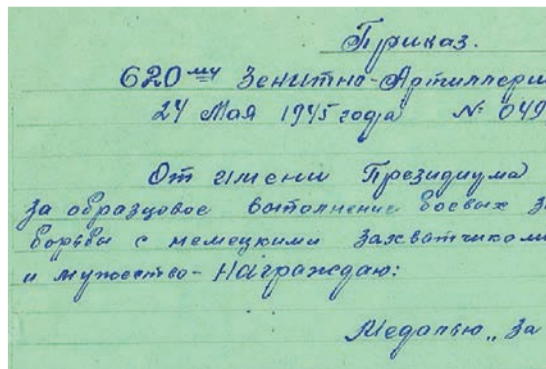 Приказ.
620му Зенитно-Артиллери
24 Мая 1945 года № 049
От имени Президиума
за образцовое выполнение боевых з
борьбы с немецкими захватчиком
и мужество - Награждаю:
Медалью „За